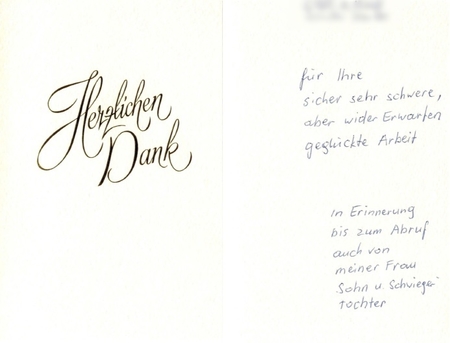 Herzlichen
Dank
für Ihre
sicher sehr schwere,
aber wider Erwarten
geglückte Arbeit
In Erinnerung
bis zum Abruf
auch von
meiner Frau
Sohn u. Schwieger
tochter